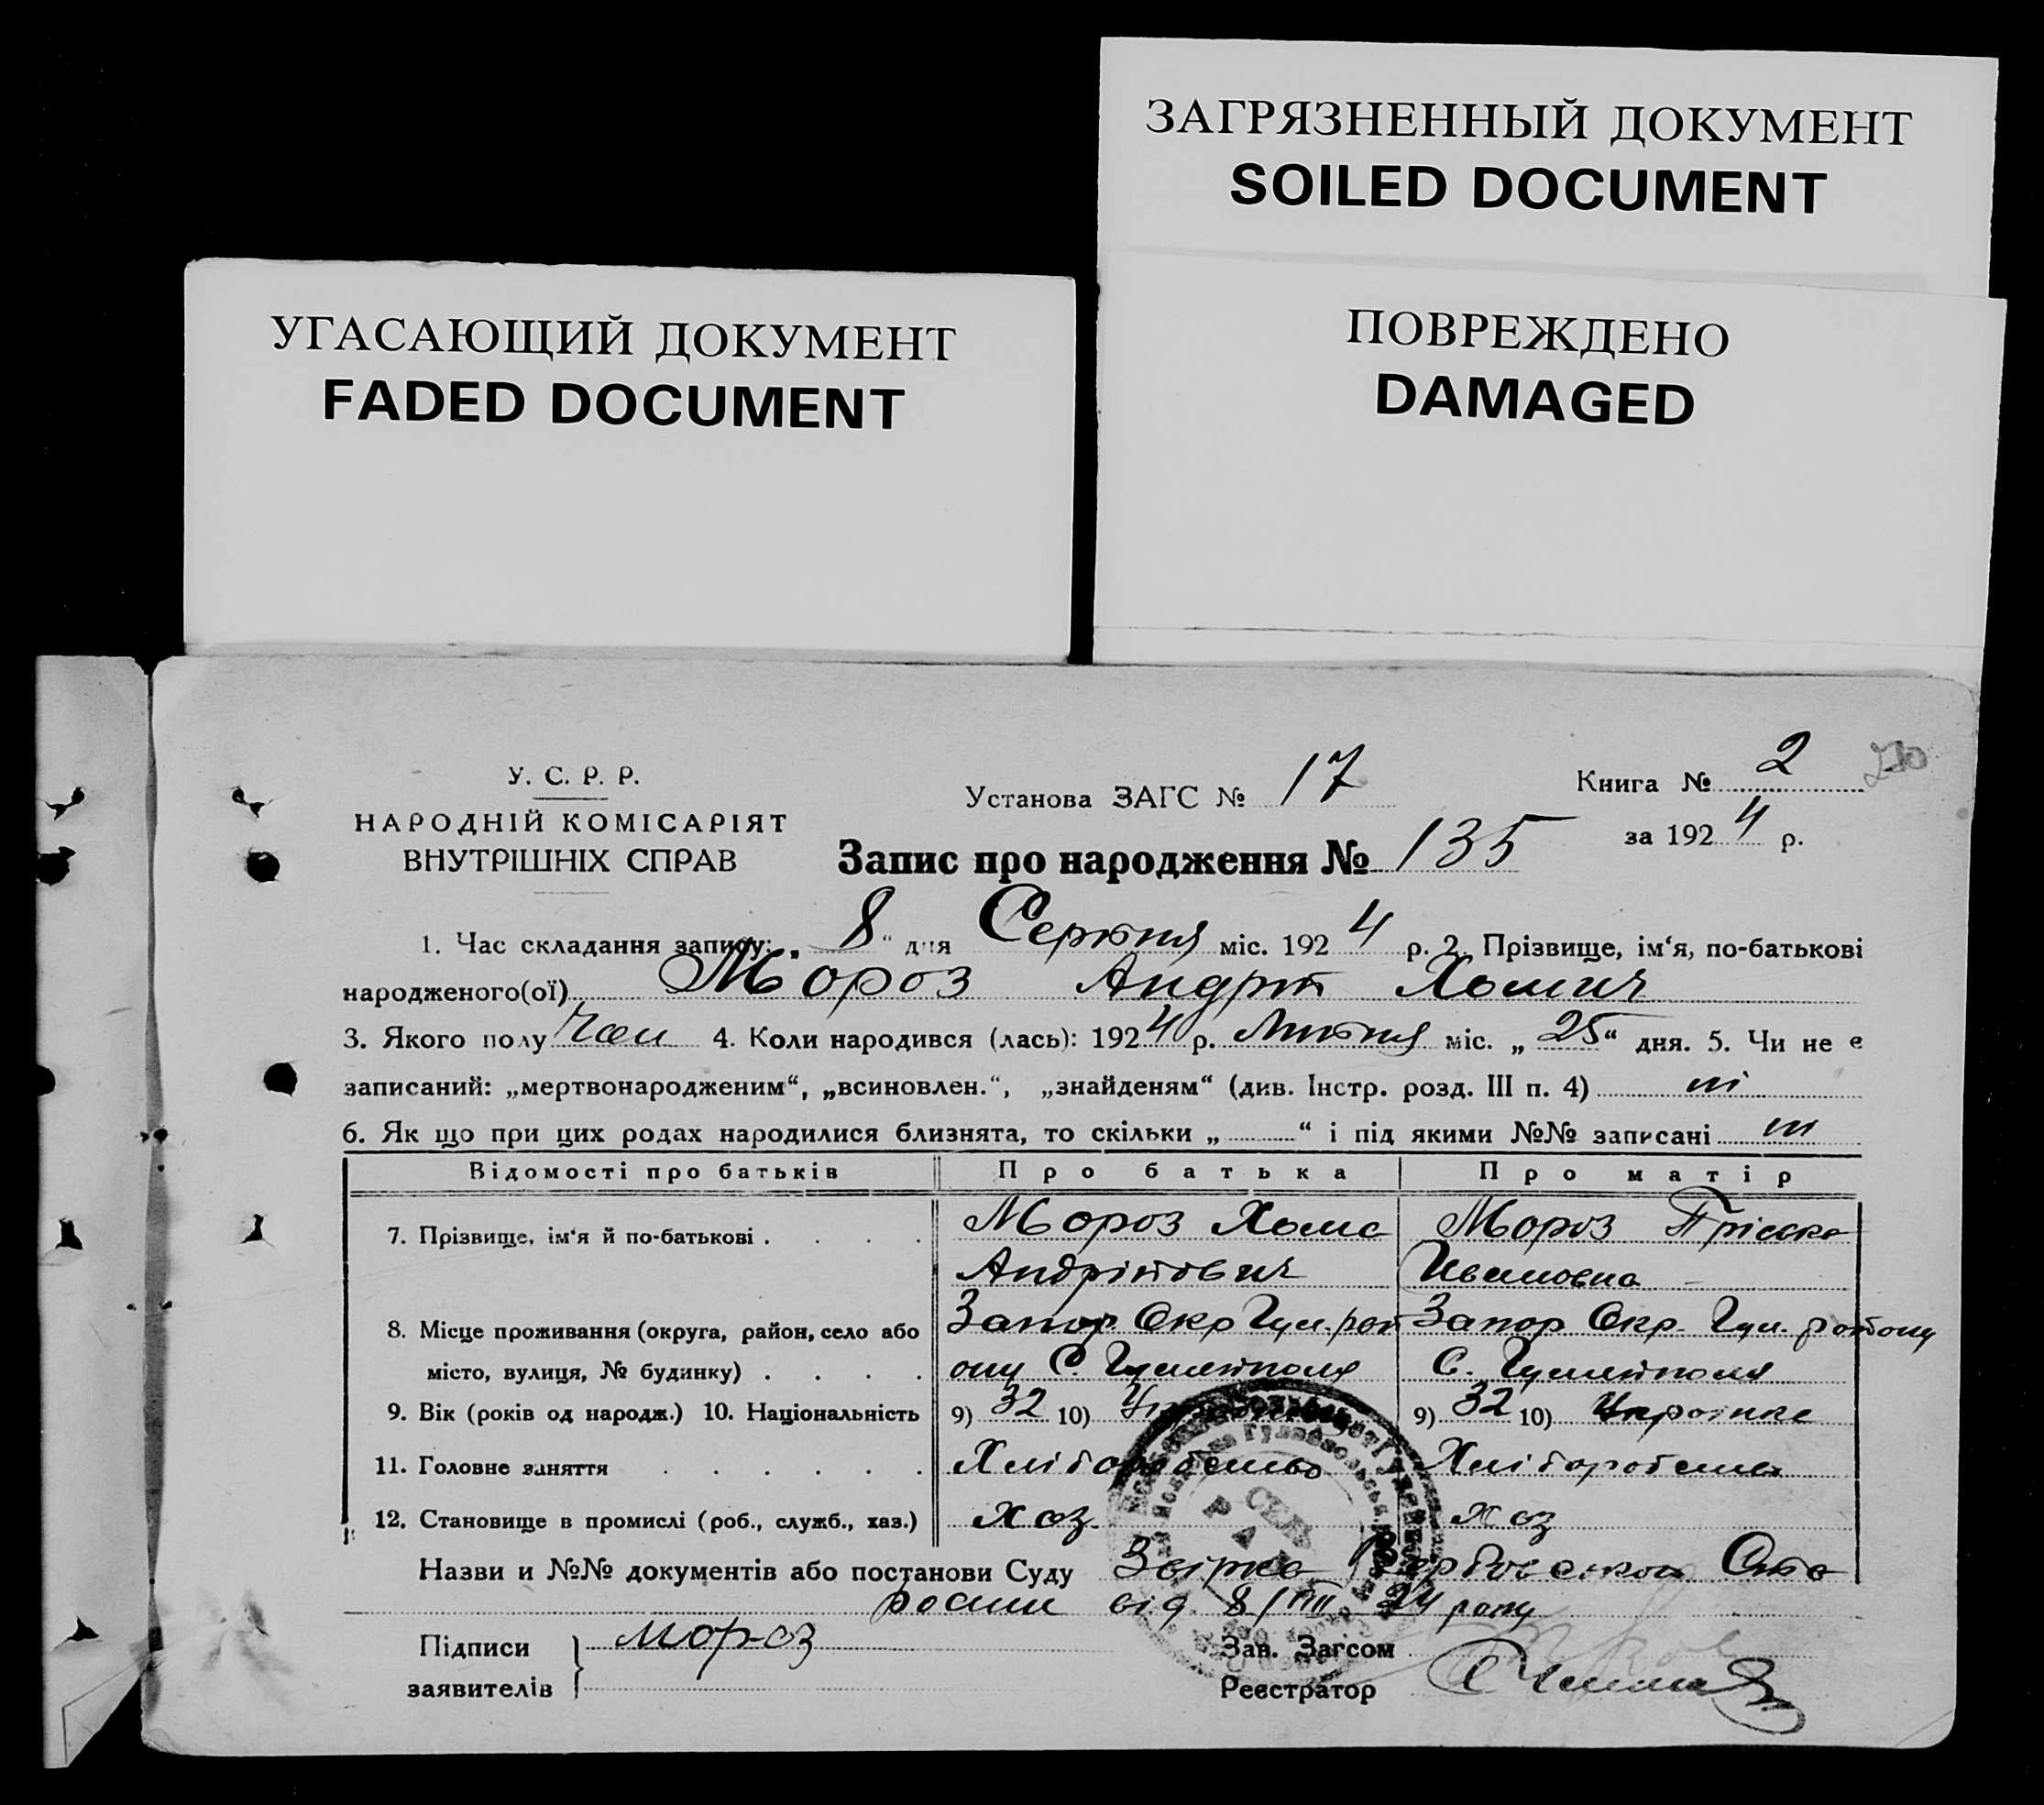 ЗАГРЯЗНЕННЫЙ ДОКУМЕНТ
SOILED DOCUMENT
УГАСАЮЩИЙ ДОКУМЕНТ
FADED DOCUMENT
ПОВРЕЖДЕНО
DAMAGED
У. С. Р. Р.
НАРОДНІЙ КОМІСАРІЯТ
ВНУТРІШНІХ СПРАВ
Установа ЗАГС № 17
Книга № 2
за 1924 р.
Запис про народження № 135
1. Час складання запису: „ 8 “ дня Серпня міс. 1924 р. 2. Прізвище, ім‘я, по-батькові
народженого(ої) Мороз Андрій Хомич
3. Якого полу Чол 4. Коли народився (лась): 1924 р. Липня міс. „ 25 “ дня. 5. Чи не є
записаний: „мертвонародженим“, „всиновлен.“, „знайденям“ (див. Інстр. розд. III п. 4) ні
6. Як що при цих родах народилися близнята, то скільки „ “ і під якими №№ записані ні
Відомості про батьків Про батька Про матір
7. Прізвище, ім‘я й по-батькові . . . . Мороз Хома Мороз Пріська
Андрійович Ивановна
8. Місце проживання (округа, район, село або Запор. Окр Гул. рай Запор Окр. Гул. району
місто, вулиця, № будинку) . . . . ону С. Гуляйполя С. Гуляйполя
9. Вік (років од народж.) 10. Національність 9) 32 10) 9) 32 10) Українка
11. Головне заняття . . . . . . Хліборобство Хліборобство
12. Становище в промислі (роб., служб., хаз.) хоз хоз
Назви и №№ документів або постанови Суду
від 8/VIII 24 року
Підписи Мороз Зав. Загсом
заявителів Реєстратор